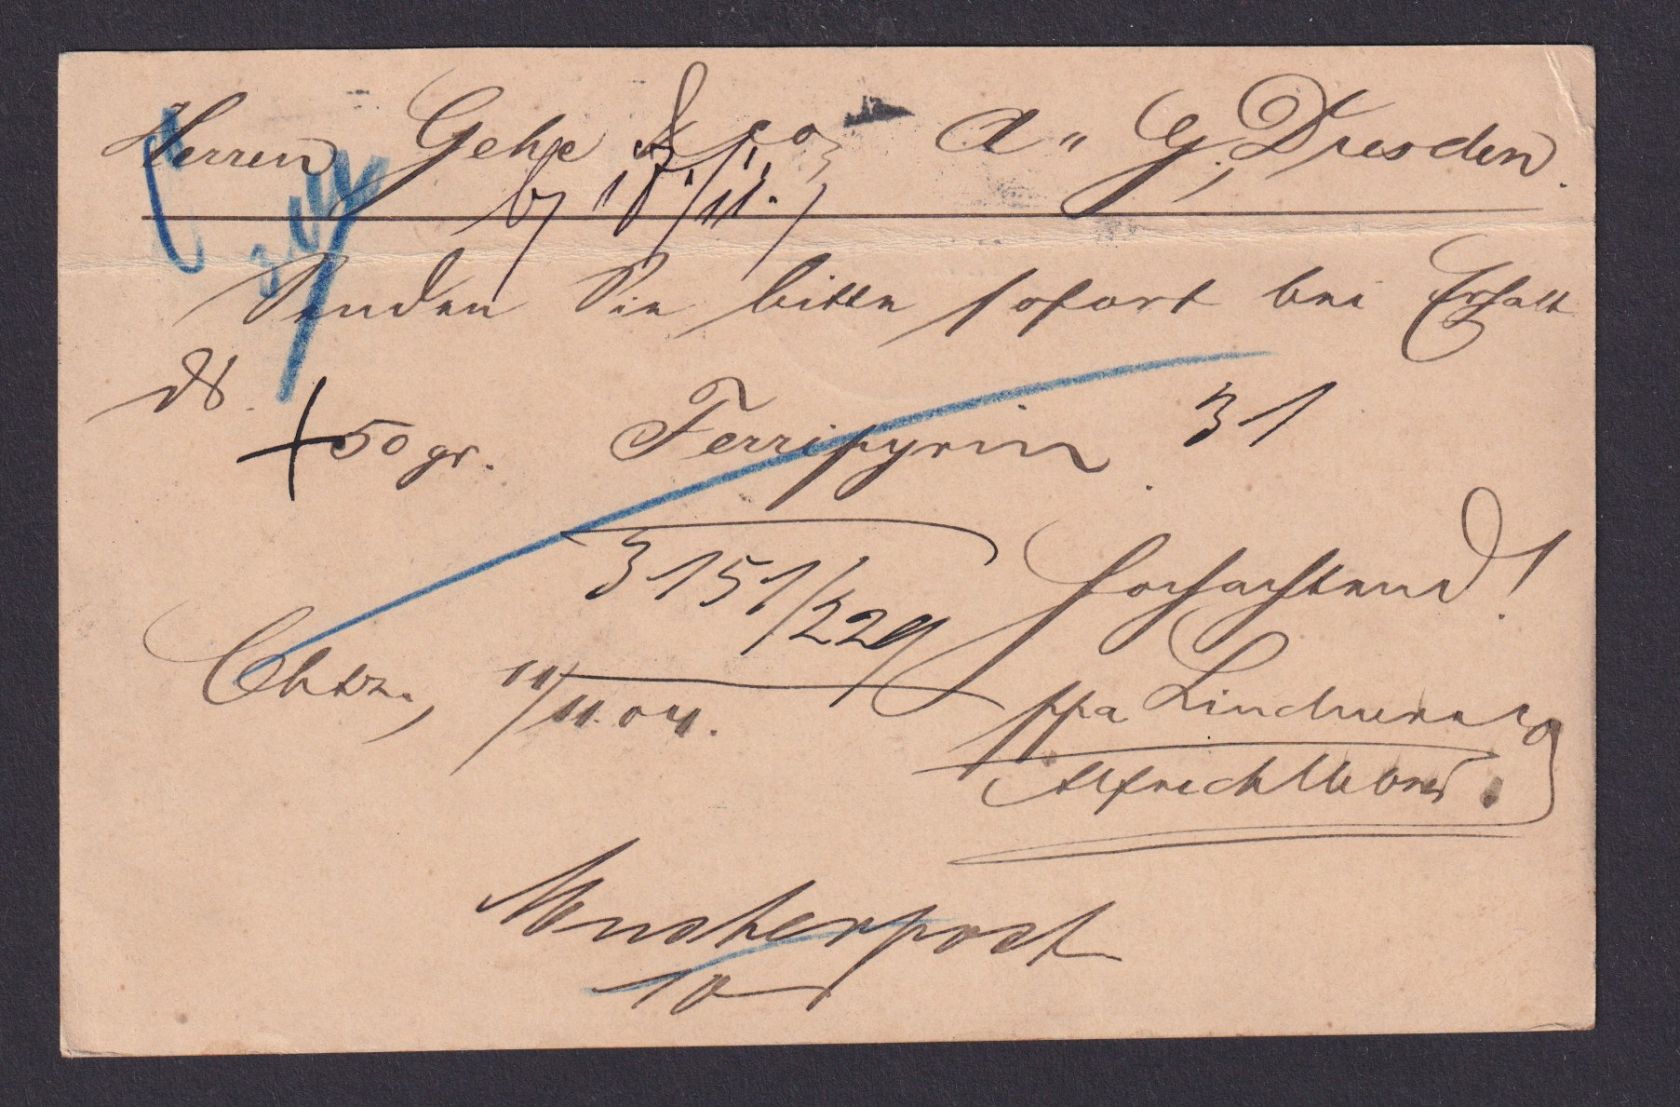 Herren Gehe & Co, A.„ G, Dresden.
Senden Sie bitte sofort bei Erhalt
ds.
+ 50 gr. Ferripyrin 31
3151/229
Hochachtend!
Chtz., 11/11.04.
ppa
Alfred
Musterpost
10